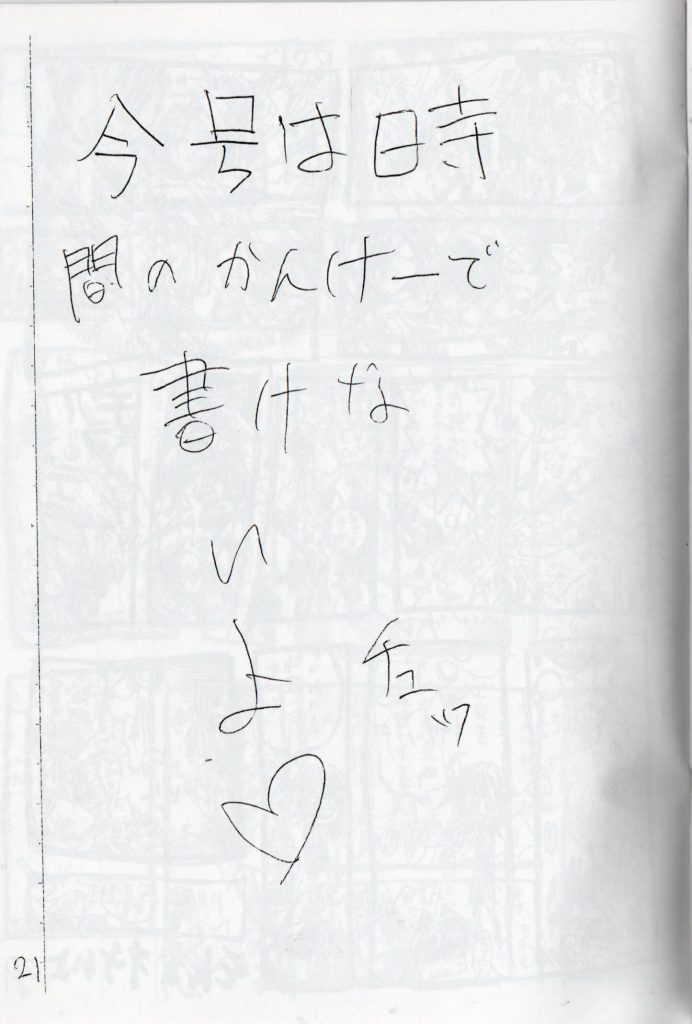 今号は時
間のかんけーで
書けな
い
よ チュッ
♡
21